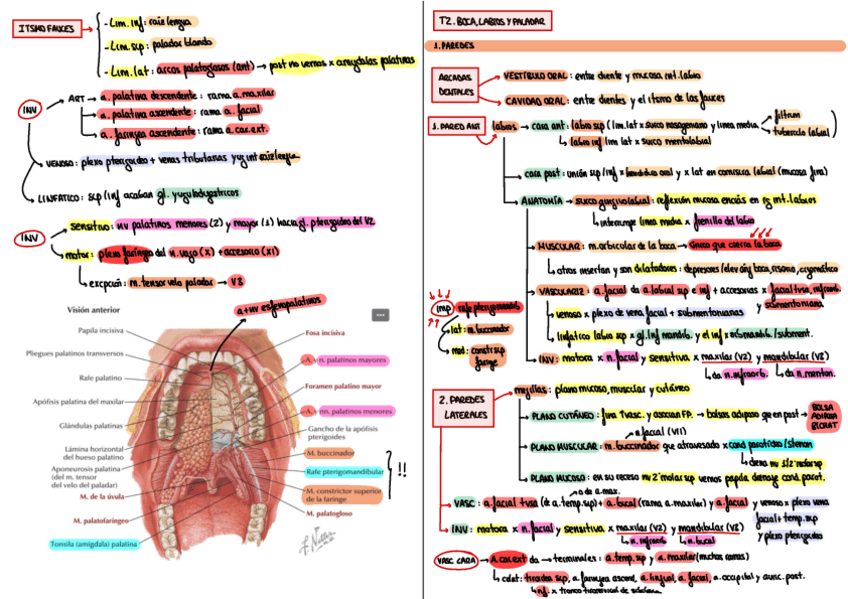 ITSMO FAUCES
- Lim. inf: raiz lengua
- Lim. sup: paladar blando
- Lim. lat: arcos palatoglosos (ant) → post no vemos x amígdalas palatinas
INV
ART → a. palatina descendente: rama a. maxilar
a. palatina ascendente: rama a. facial
a. faringea ascendente: rama a. car. ext.
VENOSO: plexo pterigoideo + venas tributarias yug int raiz lengua
LINFATICO: sup/inf acaban gl. yugulodigastricos
INV
sensitivo: nv palatinos menores (2) y mayor (1) hacia gl. pterigoideo del V2
motor: plexo faringeo del n. vago (X) + accesorio (XI)
excpción: m. tensor velo paladar → V3
a + nv esfenopalatinos
Visión anterior
Papila incisiva
Fosa incisiva
Pliegues palatinos transversos
A., v. n. palatinos mayores
Rafe palatino
Foramen palatino mayor
Apófisis palatina del maxilar
A., v. n. palatinos menores
Glándulas palatinas
Gancho de la apófisis pterigoides
Lámina horizontal del hueso palatino
M. buccinador
Aponeurosis palatina (del m. tensor del velo del paladar)
Rafe pterigomandibular
!!
M. de la úvula
M. constrictor superior de la faringe
M. palatofaríngeo
M. palatogloso
Tonsila (amígdala) palatina
F. Netter
T2. BOCA, LABIOS Y PALADAR
1. PAREDES
ARCADAS DENTALES
VESTÍBULO ORAL: entre diente y mucosa int. labio
CAVIDAD ORAL: entre dientes y el itsmo de las fauces
1. PARED ANT
labios → cara ant: labio sup (lim. lat x surco nasogeniano y linea media
filtrum
tuberculo labial)
labio inf lim lat x surco mentolabial
cara post: unión sup/inf x hendidura oral y x lat en comisura labial (mucosa fina)
ANATOMÍA → surco gingivolabial: reflexión mucosa encias en int. labios
interrumpe linea media x frenillo del labio
MUSCULAR: m. orbicular de la boca → único que cierra la boca
otros insertan y son dilatadores: depresores/elev áng boca, risorio, cigomático
VASCULARIZ: a. facial da a. labial sup e inf + accesorias x facial tvsa, infraorb. y submentoniana
venoso x plexo de vena facial + submentonianas
linfatico labio sup x gl. inf mandib. y el inf x mandib./subment.
INV: motora x n. facial y sensitiva x maxilar (V2) y mandibular (V3)
da n. infraorb. da n. menton.
imp rafe pterigomandib
lat: m. buccinador
med: constr sup faringe
2. PAREDES LATERALES
mejillas: plano mucoso, muscular y cutáneo
PLANO CUTÁNEO: fina y asocian → bolsas adiposo que en post → BOLSA ADIPOSA BICHAT
n. facial (VII)
PLANO MUSCULAR: m. buccinador que atravesado x cond parotideo / Stenon
PLANO MUCOSO: en su receso 2º molar sup vemos papila drenaje cond. parot.
a de a. max.
VASC: a. facial tvsa (de a. temp. sup) + a. bucal (rama a. maxilar) y a. facial y venoso x plexo vena facial + temp. sup y plexo pterigoideo
INV: motora x n. facial y sensitiva x maxilar (V2) y mandibular (V3)
n. infraorb n. bucal
VASC CARA → A. car. ext da → terminales: a. temp. sup y a. maxilar (muchas ramas)
colat: tiroidea sup, a. faringea ascend, a. lingual, a. facial, a. occipital y auric. post.